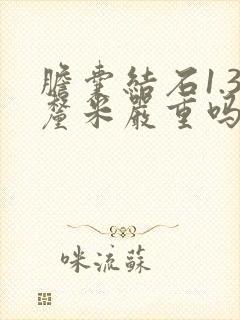 膽囊結石1.3
釐米嚴重嗎
咪流蘇